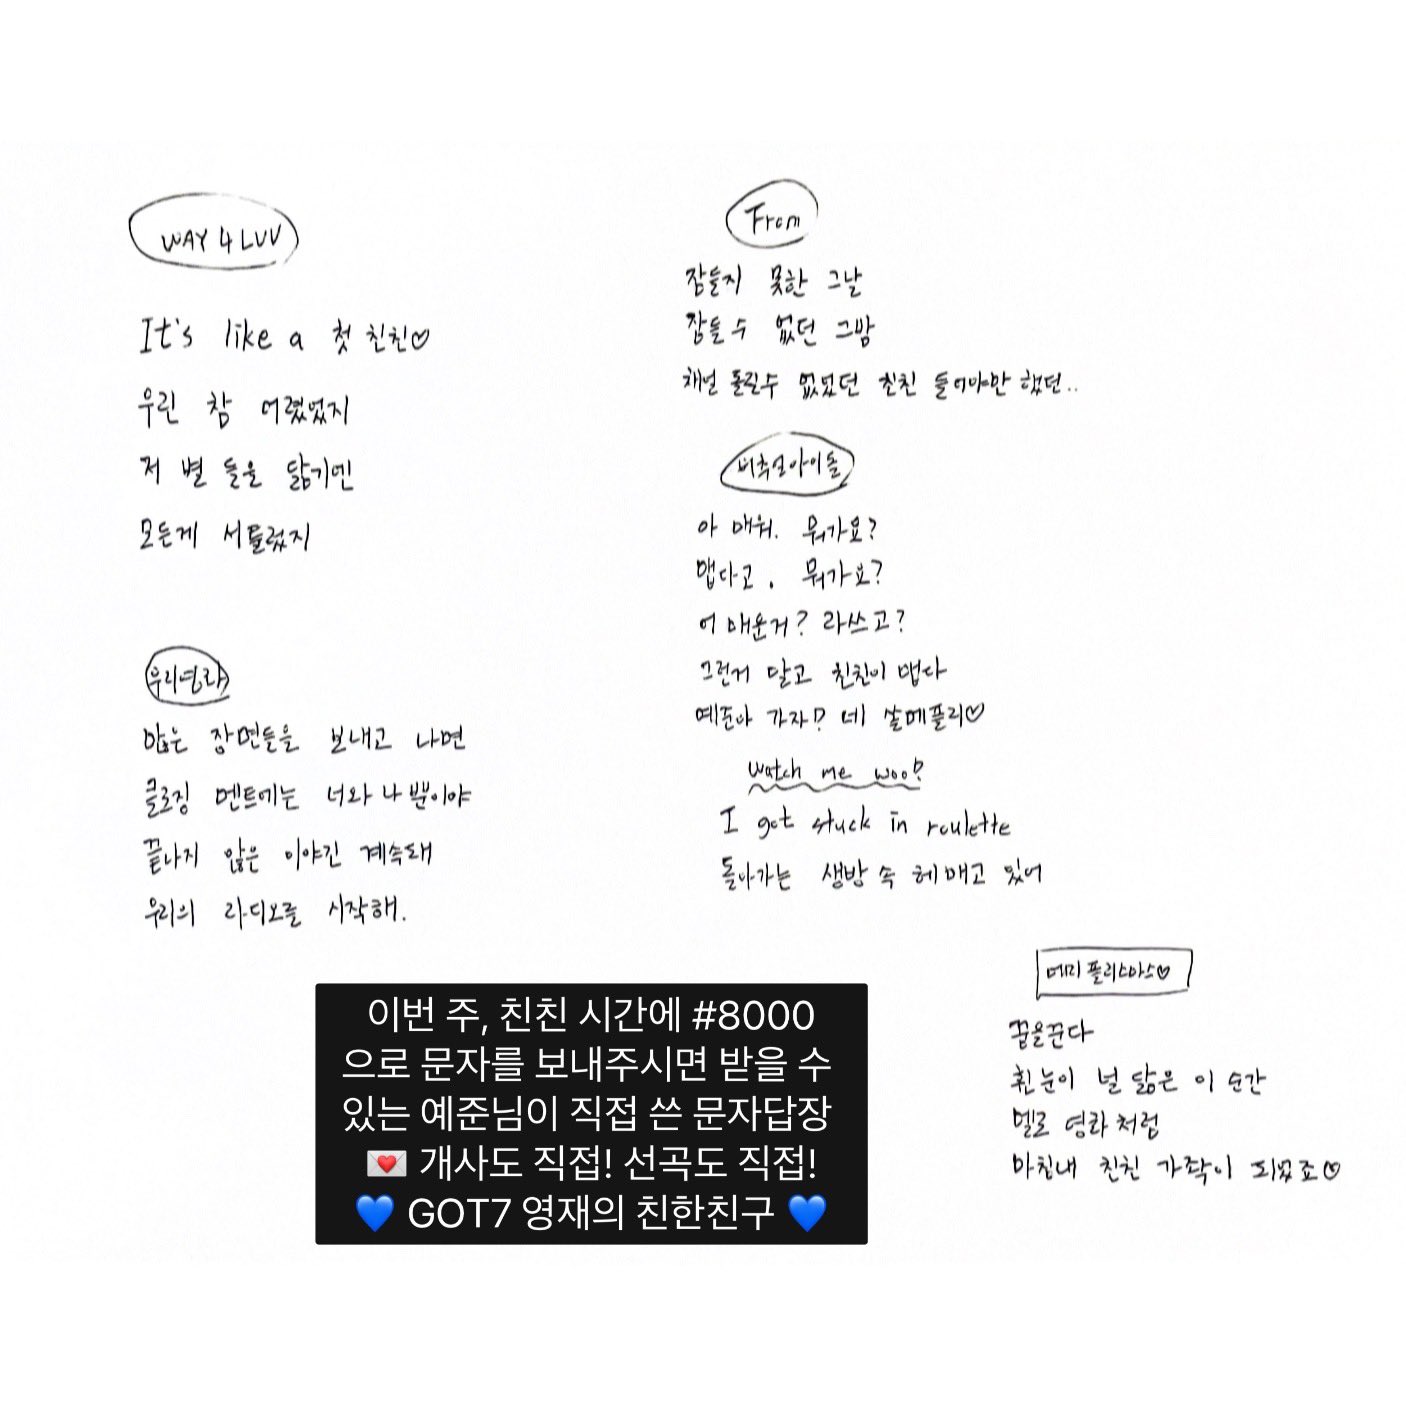 WAY 4 LUV
It's like a 첫 친친♡
우린 참 어렸었지
저 별 들을 닮기엔
모든게 서툴렀지
우리영화
많은 장면들을 보내고 나면
클로징 멘트에는 너와 나 뿐이야
끝나지 않은 이야긴 계속돼
우리의 라디오를 시작해.
From
잠들지 못한 그날
잠들 수 없던 그밤
채널 돌릴수 없었던 친친 들어야만 했던..
버추얼아이돌
아 매워. 뭐가요?
맵다고. 뭐가요?
어 매운거? 라쓰고?
그런거 말고 친친이 맵다
예준아 가자? 네 쌀메플리♡
watch me woo?
I got stuck in roulette
돌아가는 생방 속 헤매고 있어
메리 플리스마스♡
꿈을꾼다
흰눈이 널 닮은 이 순간
멜로 영화처럼
마침내 친친 가족이 되었죠♡
이번 주, 친친 시간에 #8000
으로 문자를 보내주시면 받을 수
있는 예준님이 직접 쓴 문자답장
💌 개사도 직접! 선곡도 직접!
💙 GOT7 영재의 친한친구 💙